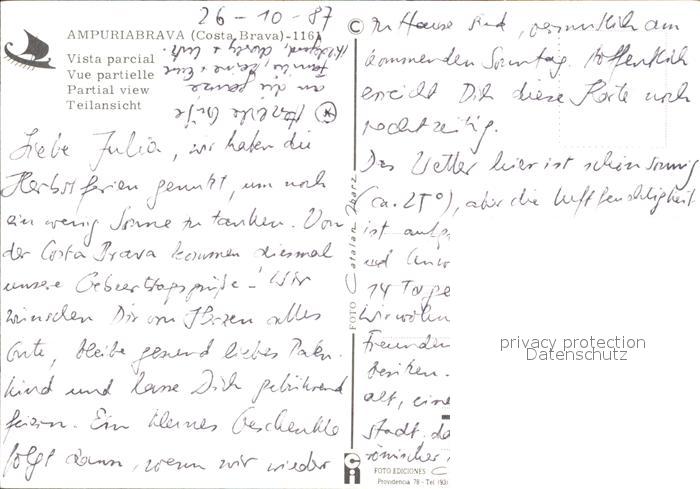 26-10-87
AMPURIABRAVA (Costa Brava)-116
Vista parcial
Vue partielle
Partial view
Teilansicht
Herzliche Grüße
an die ganze
Familie,
Liebe Julia, wir haben die
Herbstferien genutzt, um noch
ein wenig Sonne zu tanken. Von
der Costa Brava kommen diesmal
unsere Geburtstagsgrüße! Wir
wünschen Dir von Herzen alles
Gute, bleibe gesund liebes Paten-
kind und lasse Dich gebührend
feiern. Ein kleines Geschenkle
folgt dann, wenn wir wieder
zu Hause sind, vermutlich am
kommenden Sonntag. Hoffentlich
erreicht Dich diese Karte noch
rechtzeitig.
Das Wetter hier ist schön sonnig
(ca. 25°), aber die Luftfeuchtigkeit
ist
und
14 Tage
Wir wohn
Freunden
besitzen.
alt, eine
stadt, da
römischer
FOTO Catalan Ibarz
privacy protection
Datenschutz
FOTO EDICIONES C
Providencia 78 - Tel (93)